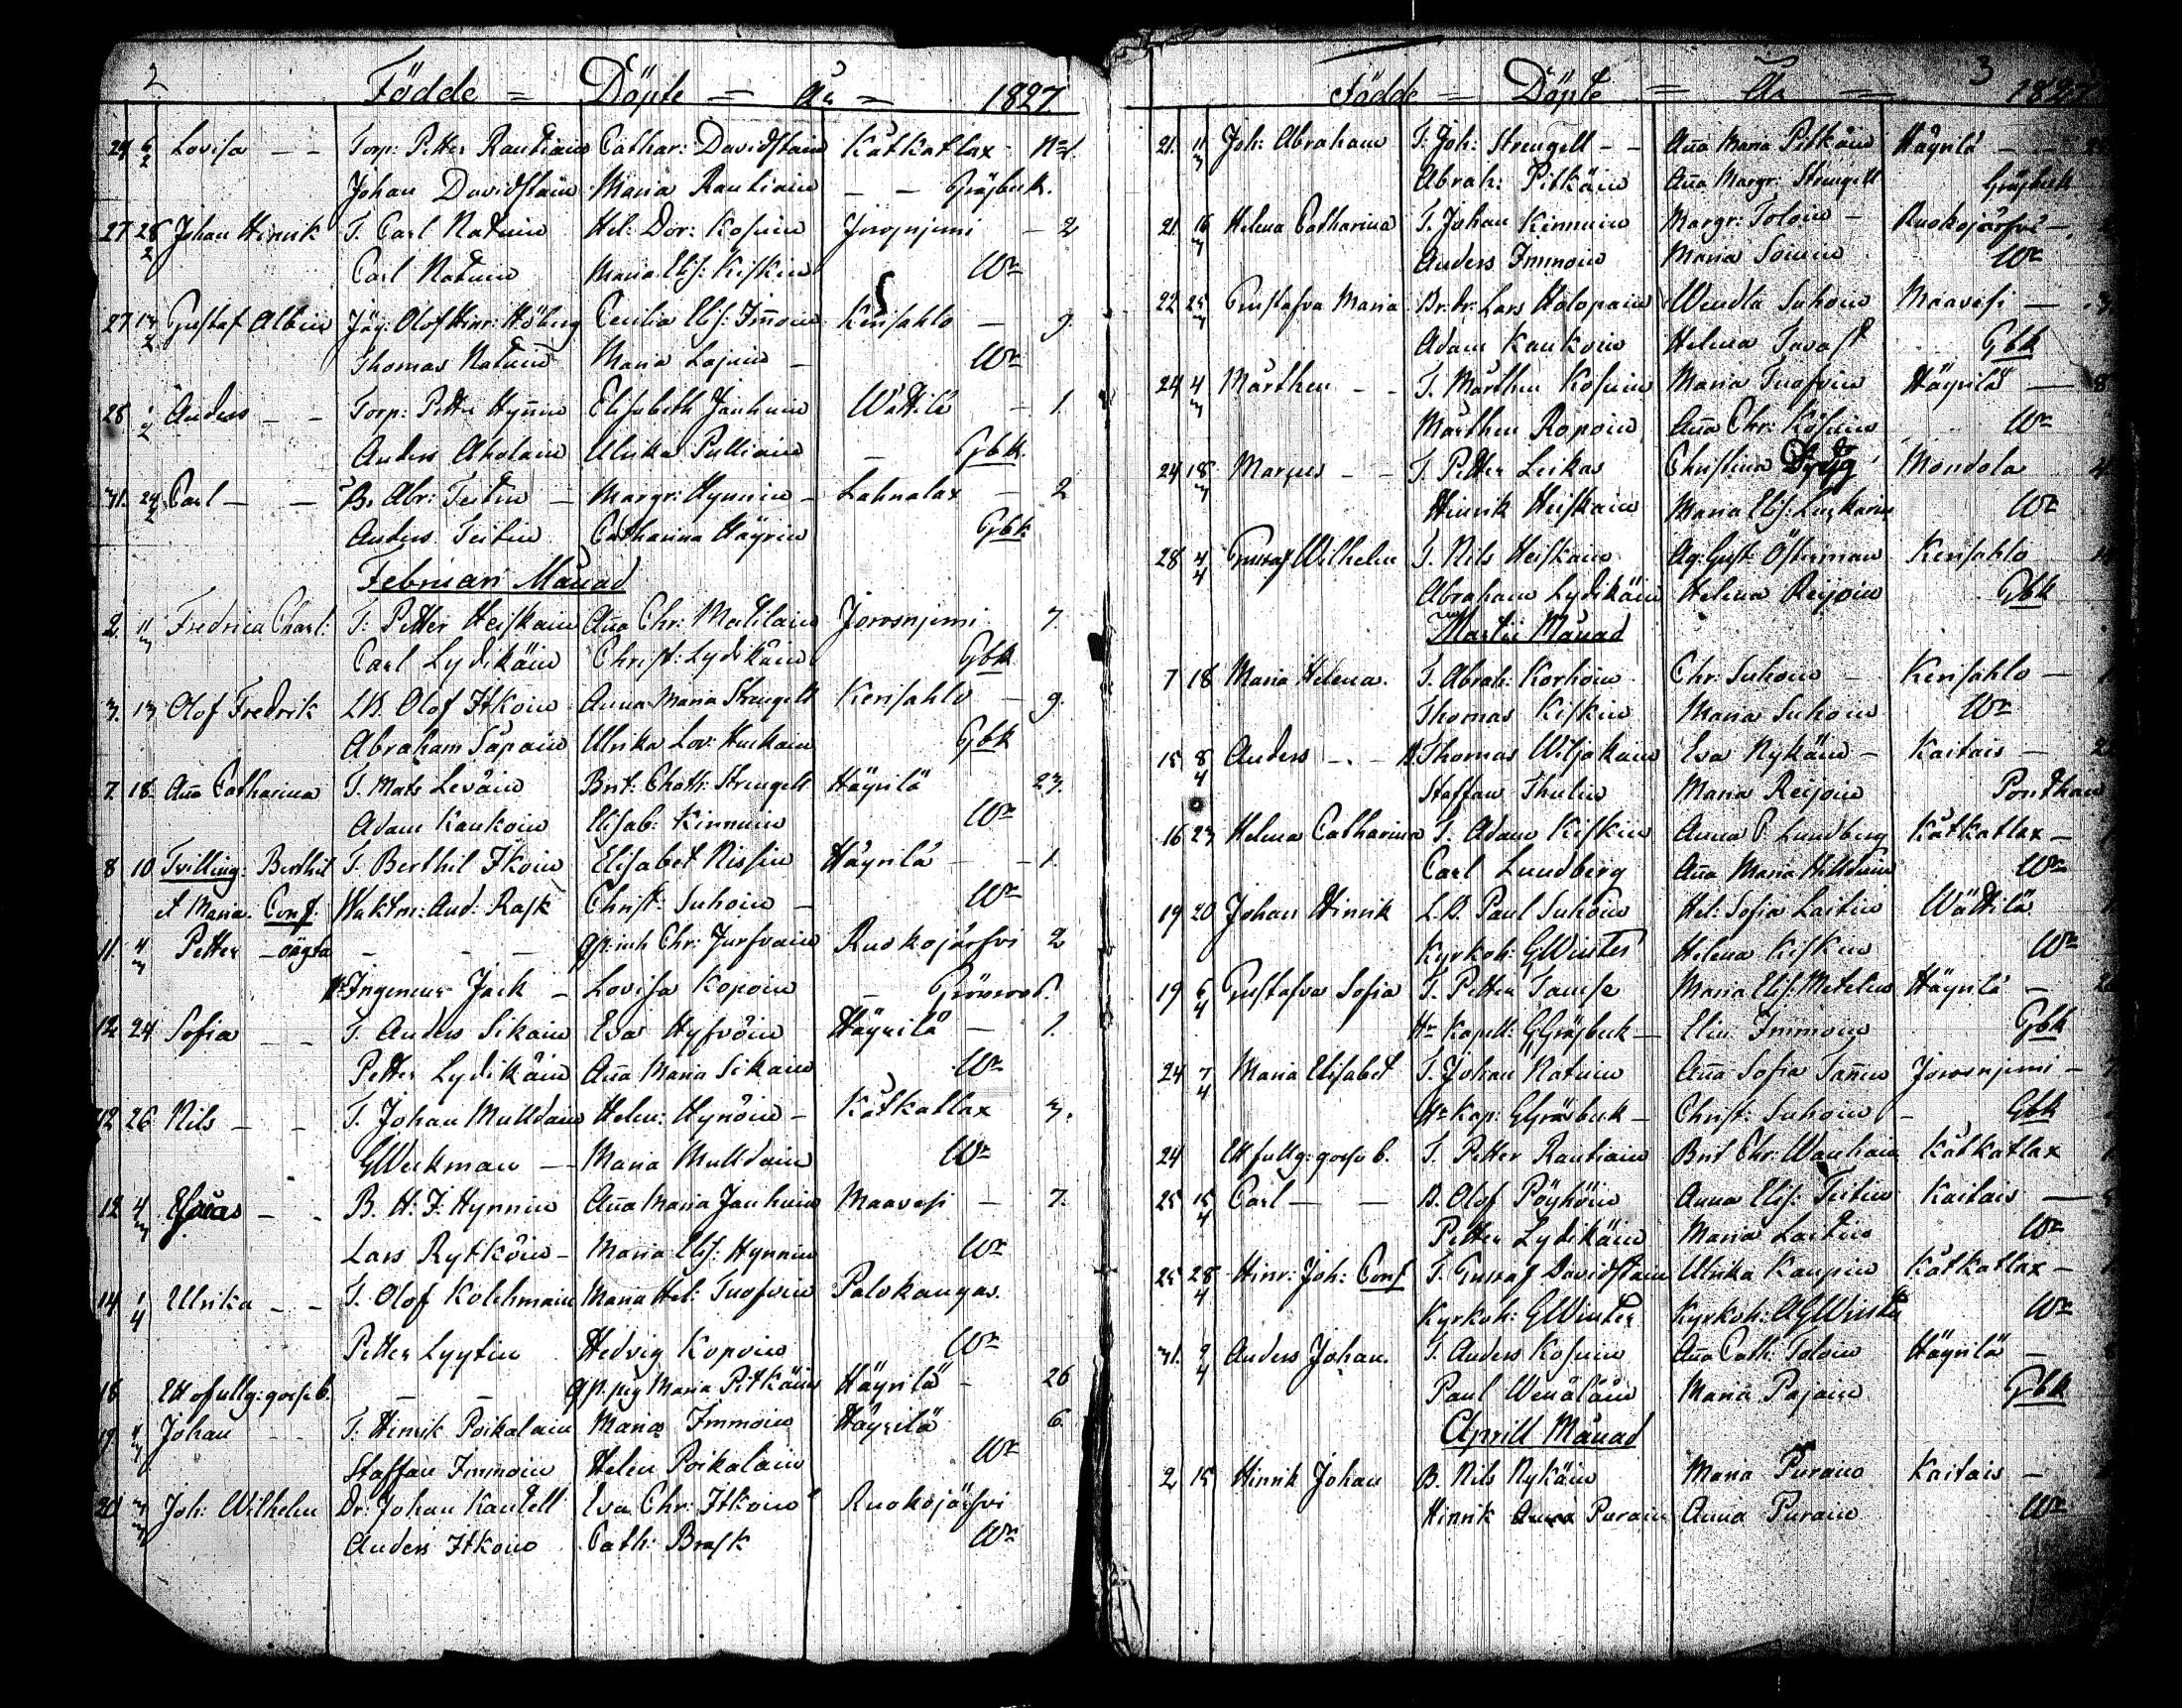 2
Födde = Döpte = År = 1827.
24 6/2 Lovisa — — Torp: Petter Rautiain Cathar: Davidstain Kätkatlax — No 1.
Johan Davidstain Maria Rautiain — — Gråsbeck.
27 28/2 Johan Hinrik T. Carl Natuin Hel: Dor: Kosuin Jorosnjemi — 2
Carl Natuin Maria Elis: Kiskin Wr
27 13/2 Gustaf Albin Jäg: Olof Hinr: Höberg Cecilia Elis: Im̄oin Kerisahlo — 9.
Thomas Natuin Maria Lajuin — Wr
28 1/2 Anders — — Torp: Petter Hyn̄in Elisabeth Jauhiain Wättilä — 1.
Anders Aholain Ulrika Pulliain — Gbk.
31. 24/2 Carl — — B. Abr: Teitin — Margr: Hynnin — Lahnalax — 2
Anders Teitin Catharina Häyrin Gbk
Februari Månad
2 11/3 Fredrica Charl: T. Petter Heiskain An̄a Chr: Matilain Jorosnjemi 7.
Carl Lydikäin Christ: Lydikäin Gbk
3. 13 Olof Fredrik L.B. Olof Itkoin Anna Maria Strengell Kerisahlo — 9.
Abraham Säpäin Ulrika Lov: Huckain Gbk
7. 18 An̄a Catharina T. Mats Leväin Brit: Chath: Strengell Häyrilä 23.
Adam Kaukoin Elisab: Kinnuin Wr
8 10 Tvilling: Berthil T. Berthil Ikoin Elisabet Nissin Häyrilä — 1.
et Maria. Conf. Waktm: And: Rask Christ: Suhoin — Wr
11. 4/3 Petter — oägta — — qp: inh Chr: Jurfvain Ruokojärfvi 2
Hr Ingenieur Jack — Lovisa Kopoin —
12 24 Sofia — — T. Anders Sikain Eva Hyfvöin Häyrilä — 1.
Petter Lydikäin An̄a Maria Sikain Wr
12 26 Nils — — T. Johan Mulldain Helen: Hynöin — Kätkatlax 3.
G Weckman — — Maria Mulldain Wr
12 4/3 Esaias — — B. H. J. Hynnin An̄a Maria Jauhiain Maavesi — 7.
Lars Rytköin — Maria Elis: Hynnin Wr
14 1/4 Ulrika — — T. Olof Kolehmain Maria Hel: Tuofvin Palokangas.
Petter Lyytin Hedvig Kopoin Wr
18 Ett ofullg: gosse b. — — qp. pig Maria Pitkäin Häyrilä — 26
19. 4/3 Johan — — T. Hinrik Poikalain Maria Immoin Häyrilä 6.
Staffan Immoin Helen Poikalain Wr
20 3/3 Joh: Wilhelm Dr: Johan Kantell Eva Chr: Itkoin Ruokojärfvi
Anders Itkoin Cath: Brask Wr
3
Födde = Döpte = År =
21. 11/3 Joh: Abraham T. Joh: Strengell — — An̄a Maria Pitkäin Häyrilä — —
Abrah: Pitkäin An̄a Margr: Strengell Gråsbeck
21. 16/3 Helena Catharina T. Johan Kinnuin Margr: Toloin — Ruokojärfvi —
Anders Immoin Maria Soinin Wr
22 25/3 Gustafva Maria Br. dr: Lars Holopain Wendla Suhoin Maavesi — 3
Adam Kaukoin Helena Tavast Gbk
24 4/3 Mårthen — — T. Mårthen Kosuin Maria Tuofvin Häyrilä — 8
Mårthen Ropoin An̄a Chr: Kosuin Wr
24 18/3 Marcus — — T. Petter Leikas Christina Mondola 4
Hinrik Heiskain Maria Elis: Luckarin Wr
28 4/4 Gustaf Wilhelm T. Nils Heiskain Ag: Gust Österman Kerisahlo
Abraham Lydikäin Helena Reijoin Gbk
Martii Månad
7 18 Maria Helena. T. Abrah: Korhoin Chr: Suhoin — Kerisahlo —
Thomas Kiskin Maria Suhoin Wr
15 8/4 Anders — . — B Thomas Wiljakain Eva Nykäin — Kaitais — 2
Staffan Thulin Maria Reijoin Ponthan
16 23 Helena Catharina T. Adam Kiskin Anna C. Lundberg Kätkatlax —
Carl Lundberg An̄a Maria Mulldain Wr
19 20 Johan Hinrik L.B. Paul Suhoin Hel: Sofia Laitin Wättilä
Kyrkoh: G Winter Helena Kiskin Wr
19 6/4 Gustafva Sofia T. Petter Tamse Maria Elis: Metelin Häyrilä — 2
Hr Kapell: G Gråsbeck — Elin: Immoin Gbk
24 7/4 Maria Elisabet T. Johan Natuin An̄a Sofia Tan̄in Jorosnjemi —
Hr Kap: G Gråsbeck — Christ: Suhoin — Gbk
24 Ett fullg: gosse b. T. Petter Rautiain Brit Chr: Wanhain Kätkatlax
25 15/4 Carl — — B. Olof Pöyhöin Anna Elis: Teitin Kaitais —
Petter Lydikäin Maria Laitin Wr
25 28/4 Hinr: Joh: Conf T. Gustaf Davidstain Ulrika Kaupin Kätkatlax —
Kyrkoh: G Winter Kyrkoh: A G Winter Wr
31. 9/4 Anders Johan. T. Anders Kosuin An̄a Cath: Toloin Häyrilä —
Paul Wenäläin Maria Pajain Gbk
Aprill Månad
2 15 Hinrik Johan B. Nils Nykäin Maria Purain Kaitais —
Hinrik Purain Anna Purain Wr